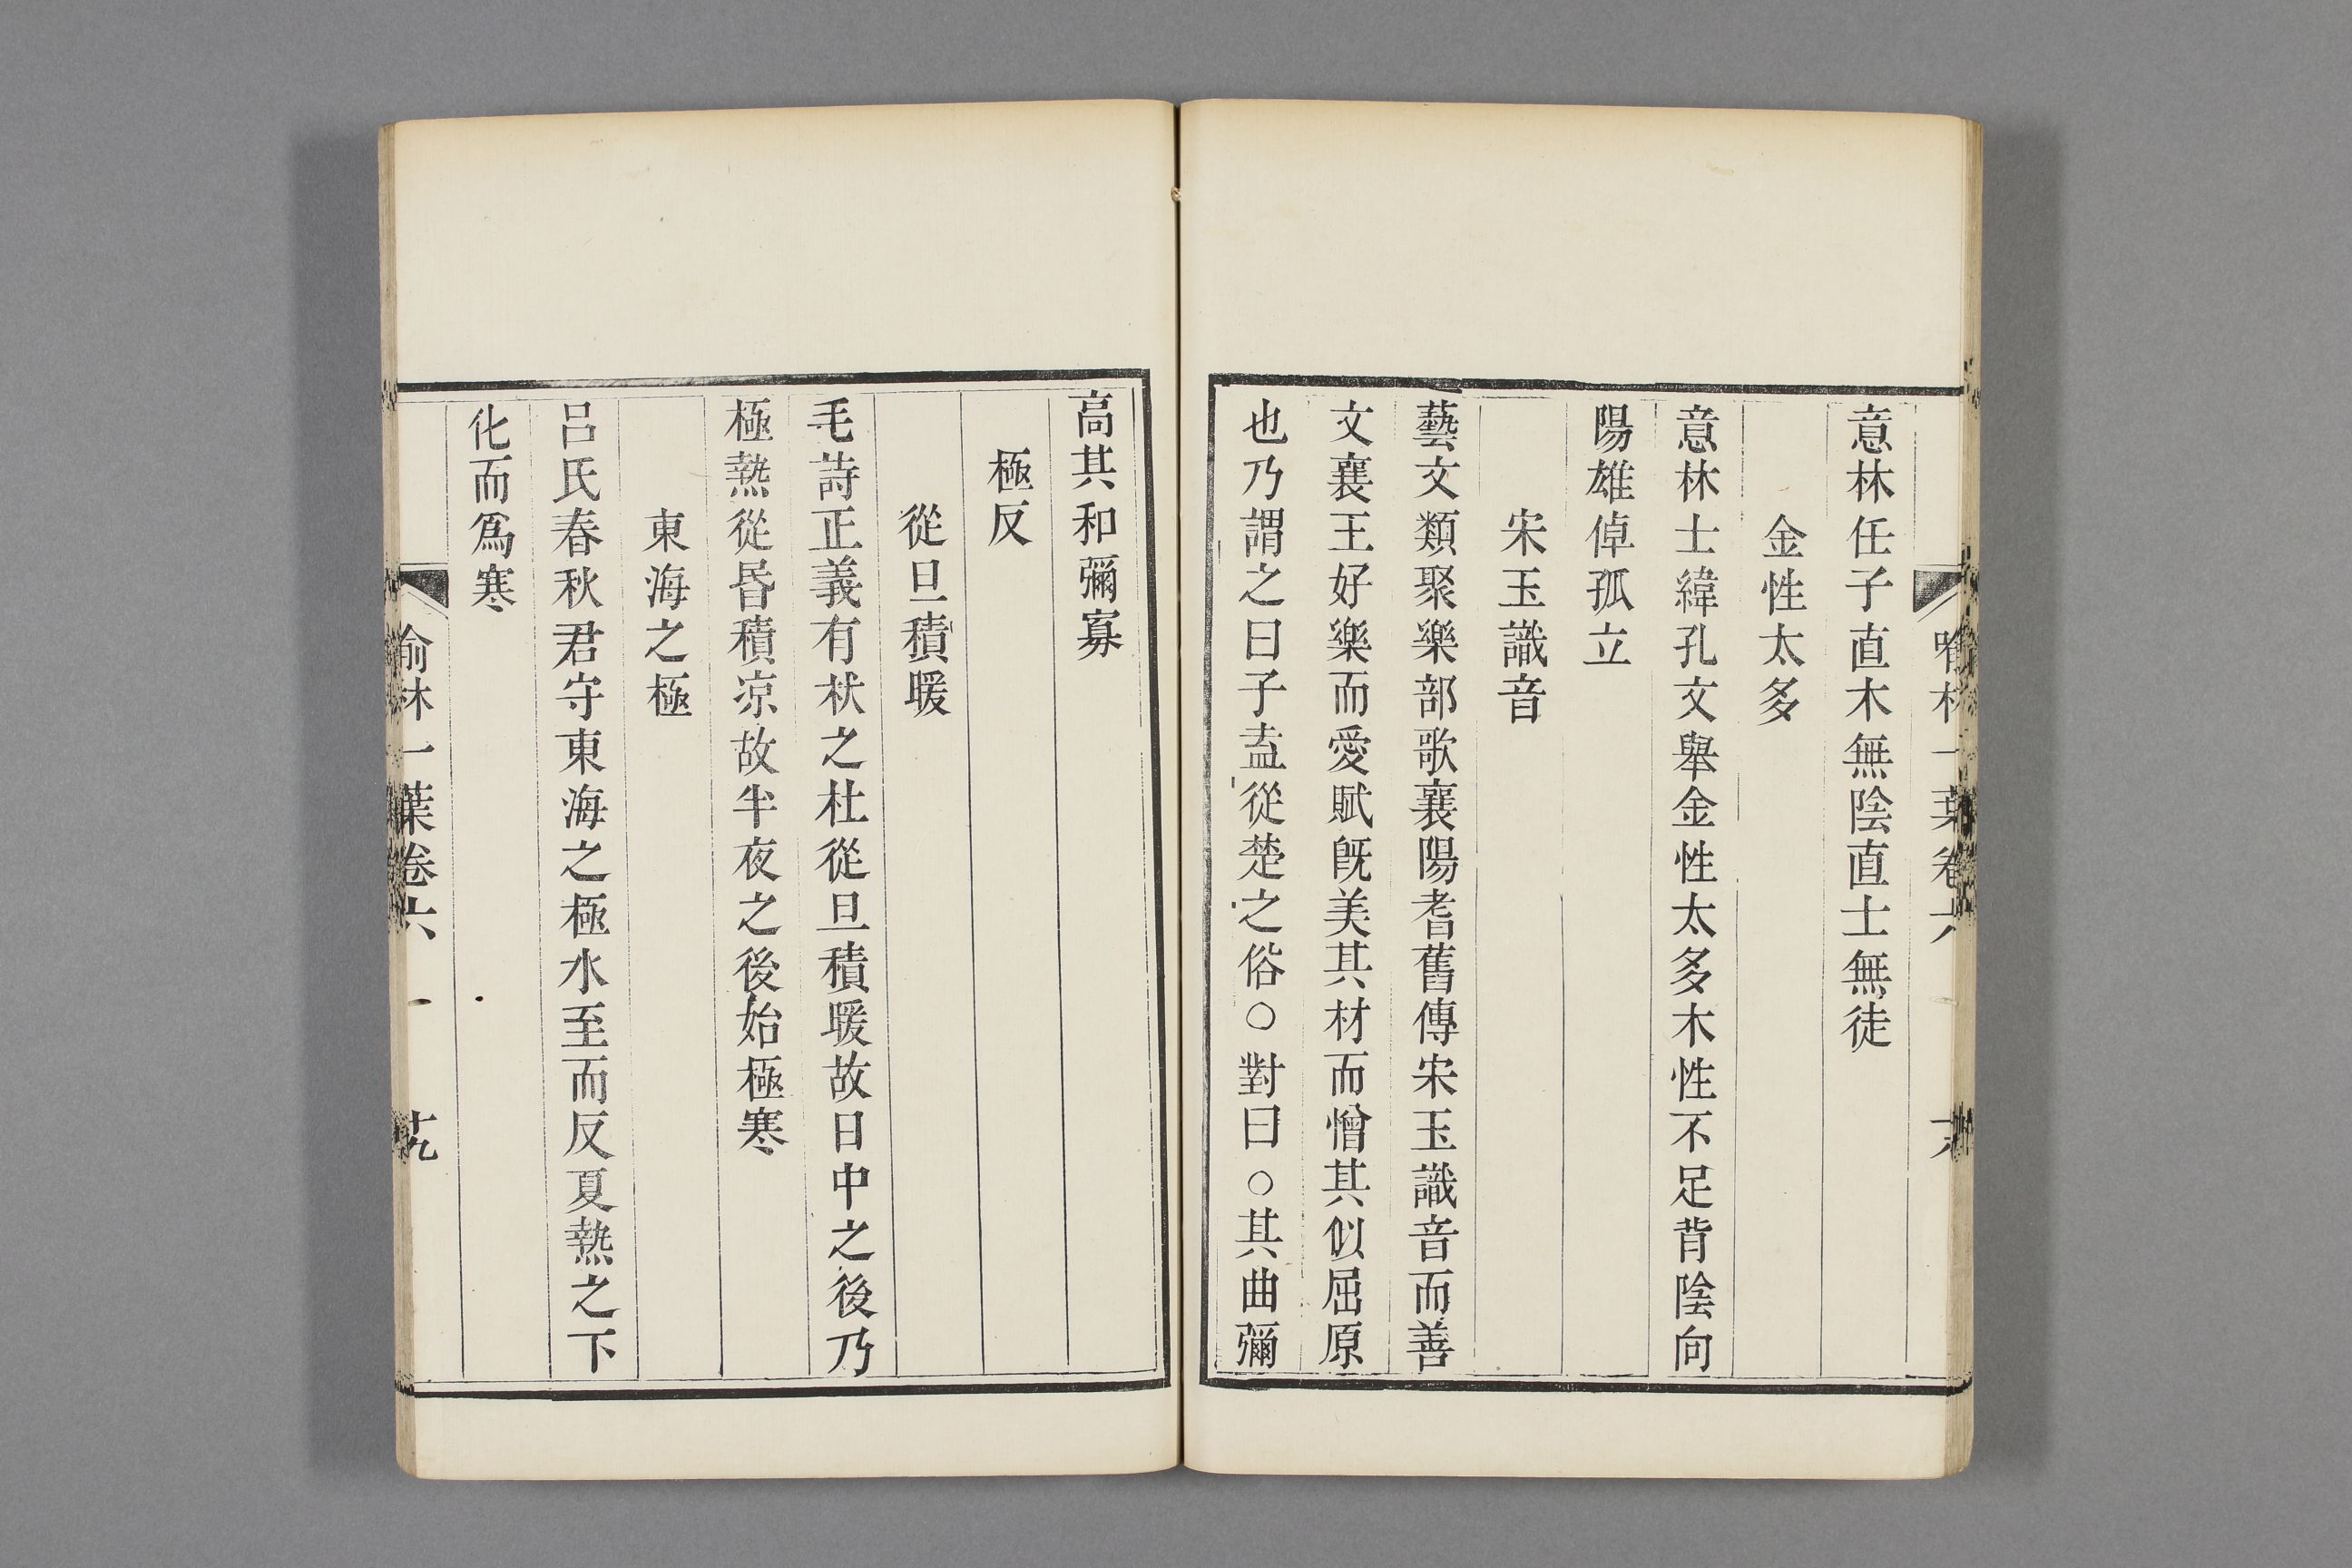 意林任子直木無陰直士無徒
金性太多
意林士緯孔文舉金性太多木性不足背陰向
陽雄倬孤立
宋玉識音
藝文類聚樂部歌襄陽耆舊傳宋玉識音而善
文襄王好樂而愛賦旣美其材而憎其似屈原
也乃謂之曰子盍從楚之俗○對曰○其曲彌
高其和彌寡
極反
從旦積暖
毛詩正義有杕之杜從旦積暖故日中之後乃
極熱從昏積凉故半夜之後始極寒
東海之極
呂氏春秋君守東海之極水至而反夏熱之下
化而爲寒
喻林一葉卷六